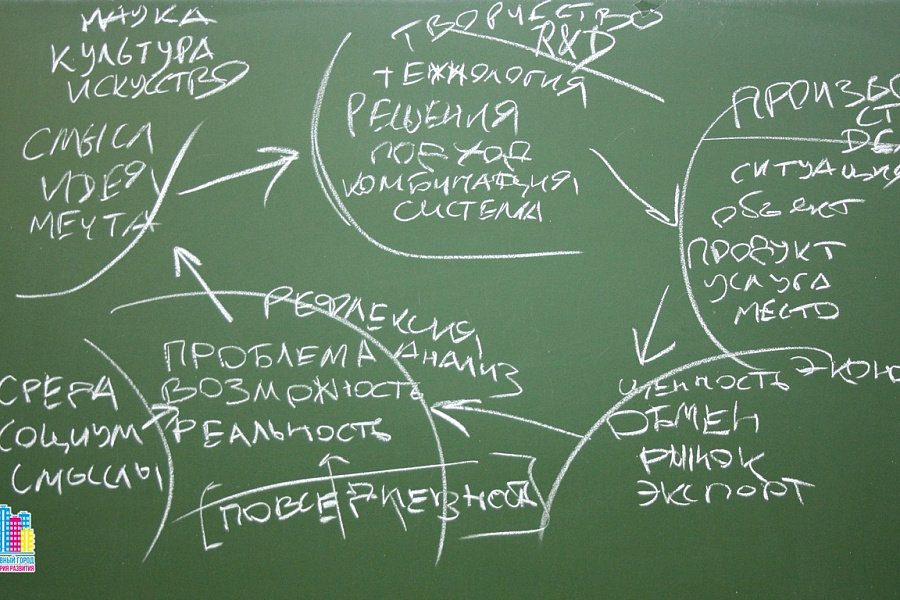 НАУКА
КУЛЬТУРА
ИСКУССТВО
СМЫСЛ
ИДЕЯ
МЕЧТА
ТВОРЧЕСТВО
R&D
ТЕХНОЛОГИЯ
РЕШЕНИЯ
ПОДХОД
КОМБИНАЦИЯ
СИСТЕМА
ПРОИЗВО
СТ
DE
СИТУАЦИЯ
ОБЪЕКТ
ПРОДУКТ
УСЛУГА
МЕСТО
РЕФЛЕКСИЯ
АНАЛИЗ
ПРОБЛЕМА
ВОЗМОЖНОСТЬ
РЕАЛЬНОСТЬ
СРЕДА
СОЦИУМ
СМЫСЛЫ
ЭКОНО
ЦЕННОСТЬ
ОБМЕН
РЫНОК
ЭКСПОРТ
ВНЫЙ ГОРОД
РИЯ РАЗВИТИЯ